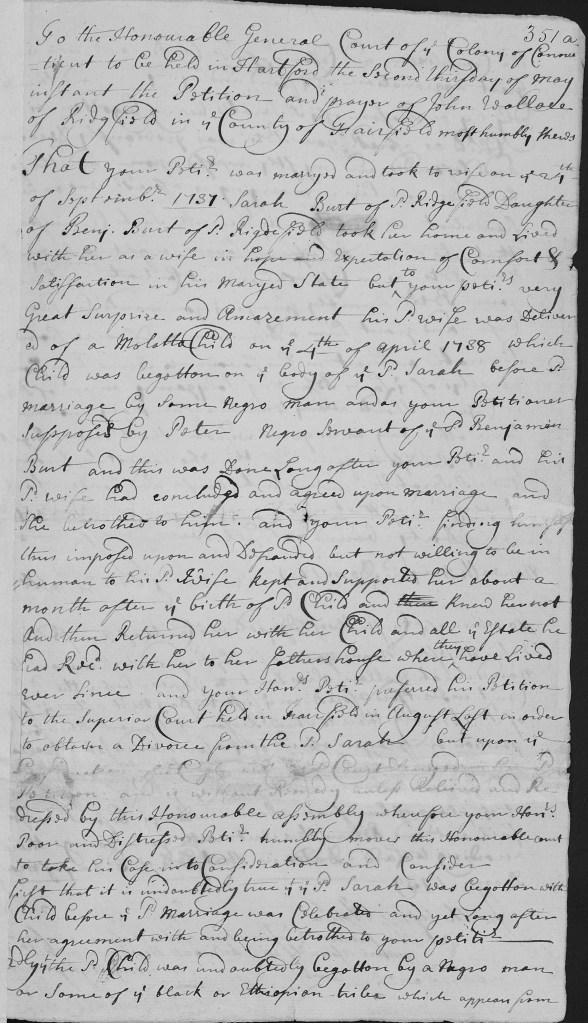 351 a
To the Honourable General Court of ye Colony of Connec
=ticut to be held in Hartford the Second thirsday of May
instant the Petition and prayer of John Wallace
of Ridgfield in ye County of Fairfield most humbly shews
That your Petir. was marryed and took to wife on ye 24th
of Septembr. 1737 Sarah Burt of sd. Ridgefield Daughter
of Benj. Burt of sd. Rigdefield took her home and Lived
with her as a wife in hope and Expectation of Comfort &
Satisfaction in his Marryed State but to your petirs. very
Great Surprize and Amazement his sd. wife was Deliver
ed of a Molatto Child on ye 4th of April 1738 which
Child was begotton on ye body of ye sd. Sarah before sd.
marriage by Some Negro man and as your Petitioner
Supposes by Peter Negro Servant of ye sd Benjamin
Burt and this was Done Long after your Petir. and his
sd. wife had concluded and agreed upon marriage and
She betrothed to him. and your Petir. finding himself
thus imposed upon and Defrauded but not willing to be in
=human to his sd. Wife kept and Supported her about a
month after ye birth of sd Child and then knew her not
And then Returned her with her Child and all ye Estate he
had Recd. with her to her fathers house where they have Lived
ever Since and your Honrs. Petir. preferred his Petition
to the Superior Court held in Fairfield in August Last in order
to obtain a Divorce from the sd. Sarah but upon ye
and is without Remedy unless Relieved and Re
dressed by this Honourable assembly wherefore your Honrs.
Poor and Distressed Petir. humbly moves this Honourable Court
to take his Case into Consideration and Consider
first that it is undoubtedly true yt ye sd. Sarah was begotton with
Child before ye sd. Marriage was Celebrated and yet Long after
her agreement with and being betrothed to your petitr.
2dly yt the sd. Child was undoubtedly begotton by a Negro man
or Some of ye black or Ethiopian tribe which appears from